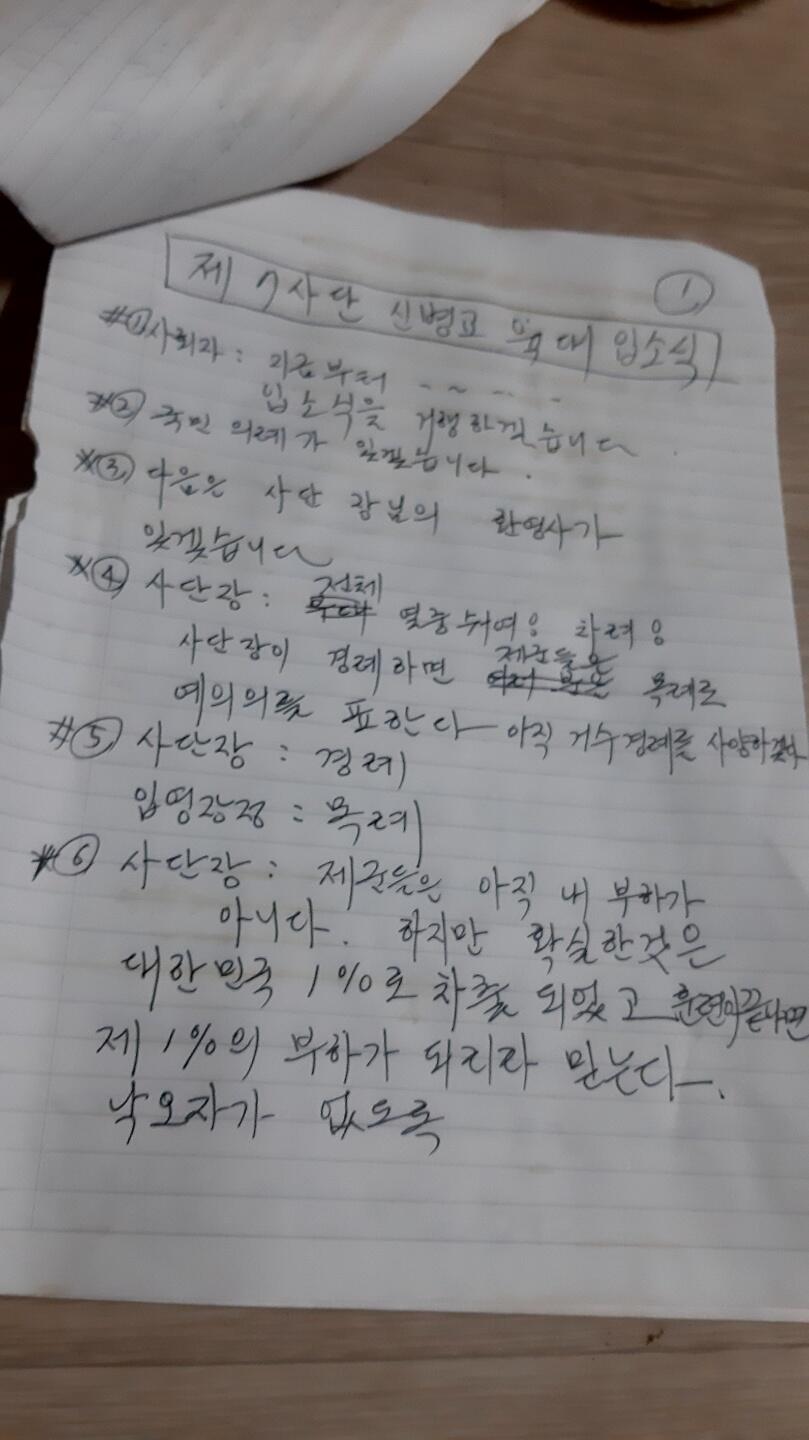 ①
제 7사단 신병교육대 입소식
#① 사회자 : 지금부터 ~ ~ - -
입소식을 거행하겠습니다.
#② 국민 의례가 있겠습니다.
#③ 다음은 사단 장님의 환영사가
있겠습니다
#④ 사단장 : 전체 열중쉬여! 차려!
사단장이 경례하면 제군들은 목례로
예의의를 표한다 아직 거수경례를 사양하겠다
#⑤ 사단장 : 경례
입영장정 : 목례
#⑥ 사단장 : 제군들은 아직 내 부하가
아니다. 하지만 확실한것은
대한민국 1%로 차출 되었고 훈련이끝나면
제 1%의 부하가 되리라 믿는다.
낙오자가 없도록